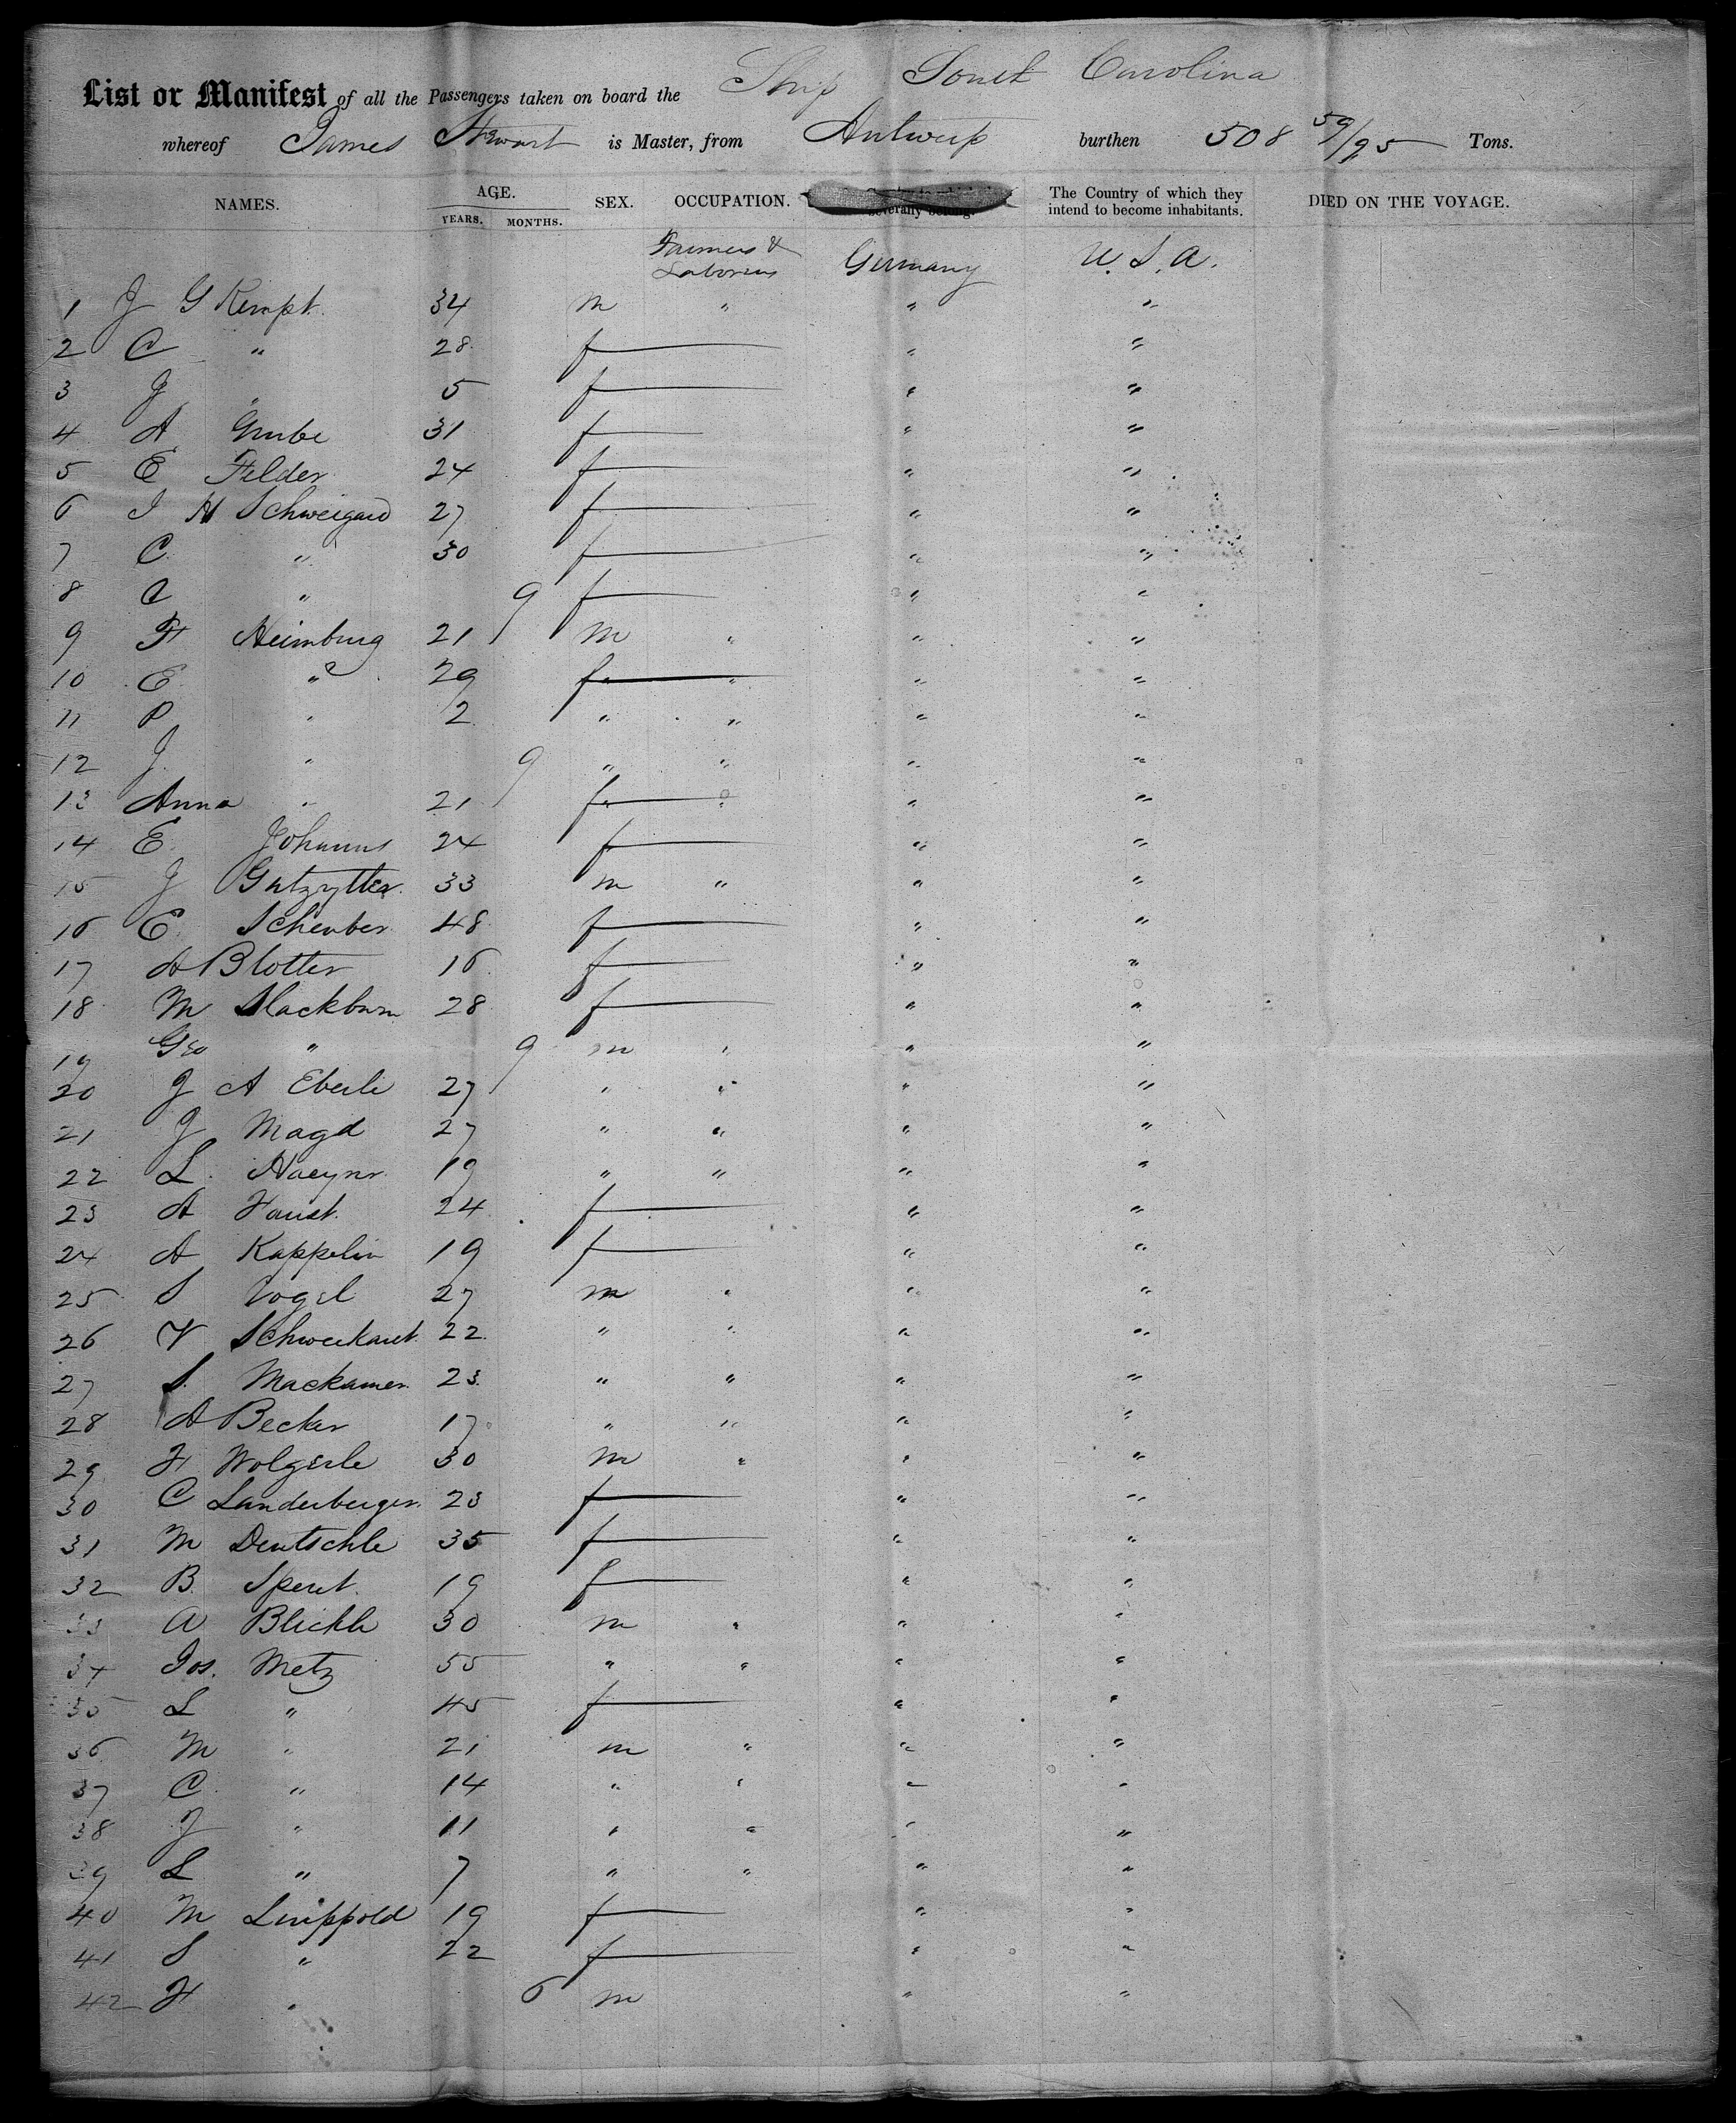 List or Manifest of all the Passengers taken on board the Ship South Carolina
whereof James Stewart is Master, from Antwerp burthen 508 59/95 Tons.
NAMES. AGE. YEARS. MONTHS. SEX. OCCUPATION. severally belong. The Country of which they intend to become inhabitants. DIED ON THE VOYAGE.
Farmers & Laborers Germany U.S.A.
1 J G Kempt. 34 m " " "
2 C " 28 f " "
3 J " 5 f " "
4 A Grube 31 f " "
5 E Felder 24 f " "
6 J H Schweigard 27 f " "
7 C " 30 f " "
8 C " 9 f " "
9 F Heimburg 21 m " " "
10 E " 29 f " " "
11 P " 2 " " " "
12 J " 9 " " " "
13 Anna " 21 f " " "
14 E Johanns 24 f " "
15 J Gutzrytter 33 m " " "
16 E Scheuber 48 f " "
17 A Blotter 16 f " "
18 M Slackburn 28 f " "
19 Geo " 9 m " " "
20 J A Eberle 27 " " " "
21 J Magd 27 " " " "
22 L. 19 " " " "
23 A Faust. 24 f " "
24 A Kappelin 19 f " "
25 S Vogel 27 m " " "
26 V 22 " " " "
27 S. Mackamer 23 " " " "
28 A Becker 17 " " " "
29 F Wolgerle 30 m " " "
30 C Landerberger 23 f " "
31 M Deutschle 35 f " "
32 B. 19 f " "
33 A Blickle 30 m " " "
34 Jos. Metz 55 " " " "
35 L " 45 f " "
36 M " 21 m " " "
37 C " 14 " " " "
38 J " 11 " " " "
39 L " 7 " " " "
40 M Luippold 19 f " "
41 S " 22 f " "
42 F " 6 m " "